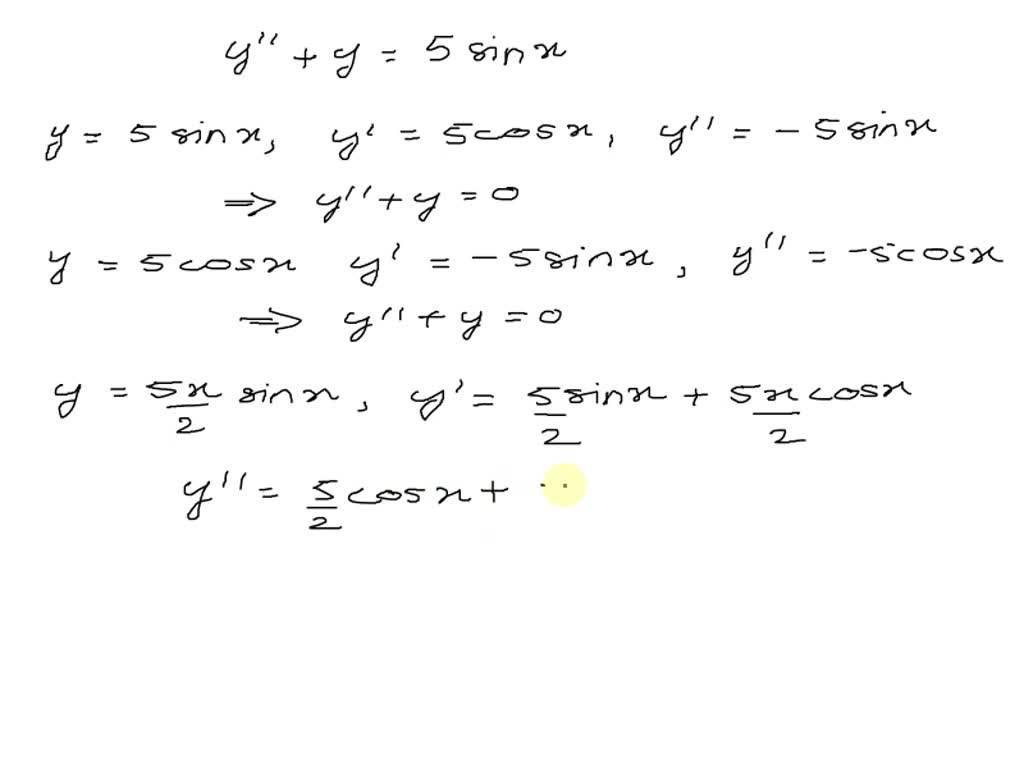 y'' + y = 5 sin x
y = 5 sin x, y' = 5 cos x, y'' = - 5 sin x
⇒ y'' + y = 0
y = 5 cos x y' = - 5 sin x, y'' = -5 cos x
⇒ y'' + y = 0
y = 5x/2 sin x, y' = 5/2 sin x + 5x/2 cos x
y'' = 5/2 cos x +